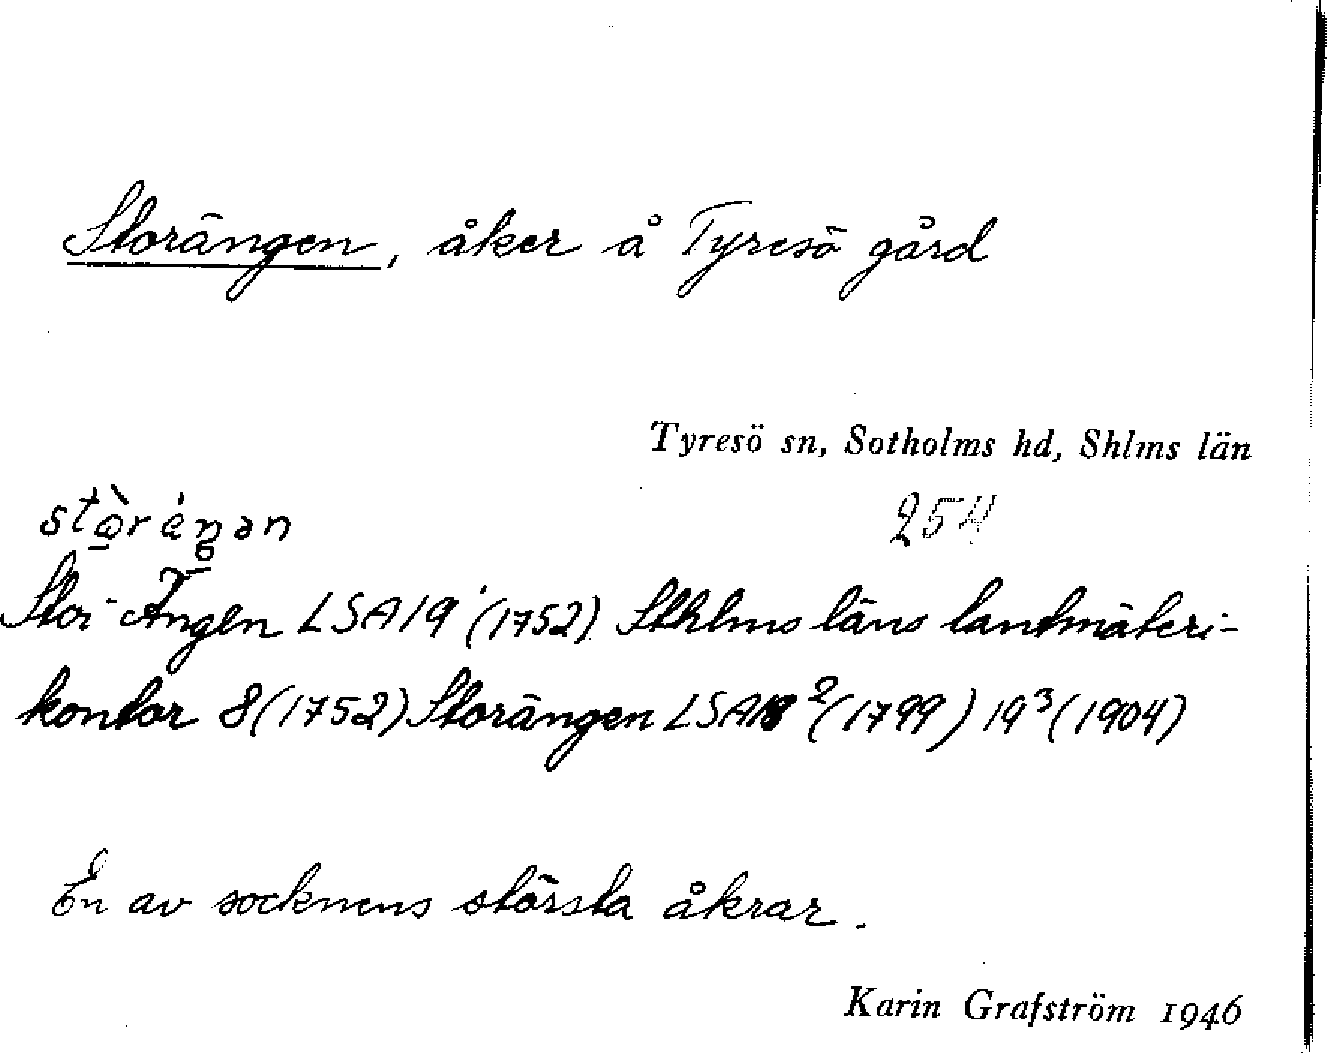 Storängen, åker å Tyresö gård
Tyresö sn, Sotholms hd, Shlms län
254
Stor-Ängen LSA 19¹ (1752) Sthlms läns lantmäteri-
kontor 8 (1752) Storängen LSA 18² (1799) 19³ (1904)
En av socknens största åkrar.
Karin Grafström 1946